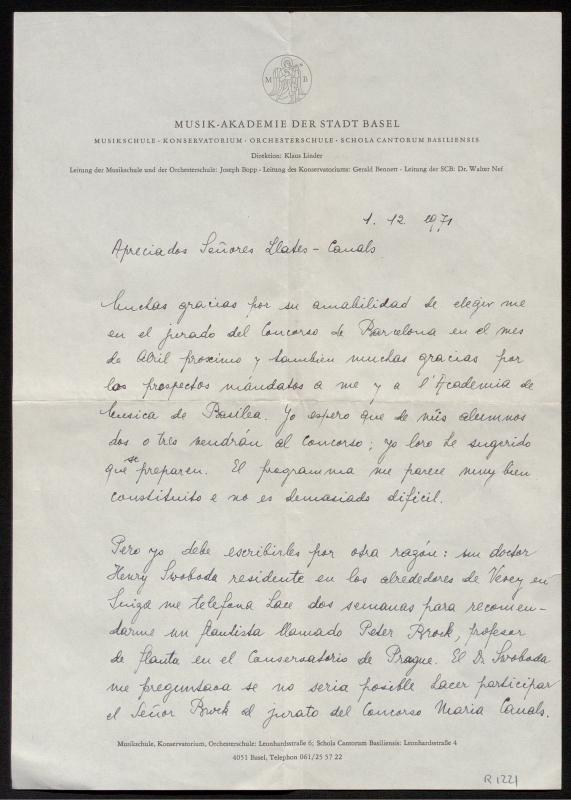 M B
MUSIK-AKADEMIE DER STADT BASEL
MUSIKSCHULE · KONSERVATORIUM · ORCHESTERSCHULE · SCHOLA CANTORUM BASILIENSIS
Direktion: Klaus Linder
Leitung der Musikschule und der Orchesterschule: Joseph Bopp - Leitung des Konservatoriums: Gerald Bennett - Leitung der SCB: Dr. Walter Nef
1. 12. 1971
Apreciados Señores Llates - Canals
Muchas gracias por su amabilidad de elegir me
en el jurado del Concorso de Barcelona en el mes
de Abril proximo y tambien muchas gracias por
los prospectos mándatos a me y a l'Academia de
Musica de Basilea. Yo espero que de mis alumnos
dos o tres vendrán al concorso; yo loro he sugerido
que se preparen. El programma me parece muy bien
constituito e no es demasiado dificil.
Pero yo debe escribirles por otra razón: un doctor
Henry Swoboda residente en los alrededores de Vevey en
Suiza me telefona hace dos semanas para recomen-
darme un flautista llamado Peter Brock, profesor
de flauta en el Conservatorio de Prague. El Dr Swoboda
me preguntava se no seria posible hacer participar
el Señor Brock al jurato del Concorso Maria Canals.
Musikschule, Konservatorium, Orchesterschule: Leonhardsstraße 6; Schola Cantorum Basiliensis: Leonhardsstraße 4
4051 Basel, Telephon 061/25 57 22
R 1221